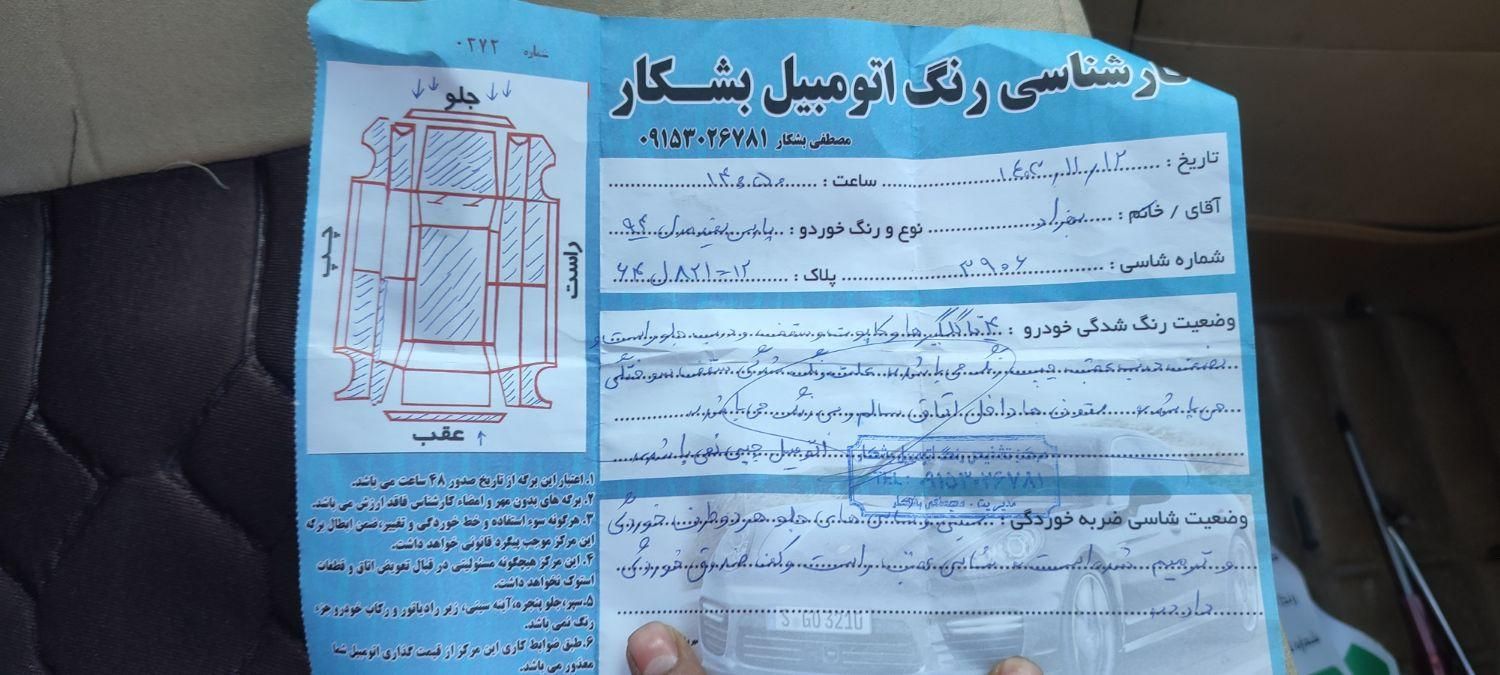 کارشناسی رنگ اتومبیل بشکار
مصطفی بشکار ۰۹۱۵۳۰۲۶۷۸۱
شماره ۰۲۷۲
جلو
چپ
راست
عقب
تاریخ : ۱۴۰۲/۱۱/۱۲ ساعت : ۱۴:۵۰
آقای / خانم : نوع و رنگ خوردو : پارس سفید مدل ۹۴
شماره شاسی : ۳۹۰۶ پلاک : ۱۲-۸۲۱ل۶۴
وضعیت رنگ شدگی خودرو : ۴ تا گلگیرها و کاپوت و سقف و درب جلو راست و
نصف درب عقب چپ رنگ می باشد. علت رنگ شدگی سقف سوختگی
می باشد. ستون ها داخل اتاق سالم و بی رنگ می باشد.
اتومبیل چپی نمی باشد.
مرکز تشخیص رنگ اتومبیل بشکار
TEL: ۰۹۱۵۳۰۲۶۷۸۱
مدیریت : مصطفی بشکار
وضعیت شاسی ضربه خوردگی : سینی و شاسی های جلو هر دو طرف خوردگی
و ترمیم شده است. شاسی عقب راست و کف صندوق خوردگی
دارد.
S GO 3210
۱. اعتبار این برگه از تاریخ صدور ۴۸ ساعت می باشد.
۲. برگه های بدون مهر و امضاء کارشناس فاقد ارزش می باشد.
۳. هرگونه سوء استفاده و خط خوردگی و تغییر، ضمن ابطال برگه
این مرکز موجب پیگرد قانونی خواهد داشت.
۴. این مرکز هیچگونه مسئولیتی در قبال تعویض اتاق و قطعات
استوک نخواهد داشت.
۵. سپر، جلو پنجره، آینه سینی، زیر رادیاتور و رکاب خودرو جزء
رنگ نمی باشد.
۶. طبق ضوابط کاری این مرکز از قیمت گذاری اتومبیل شما
معذور می باشد.